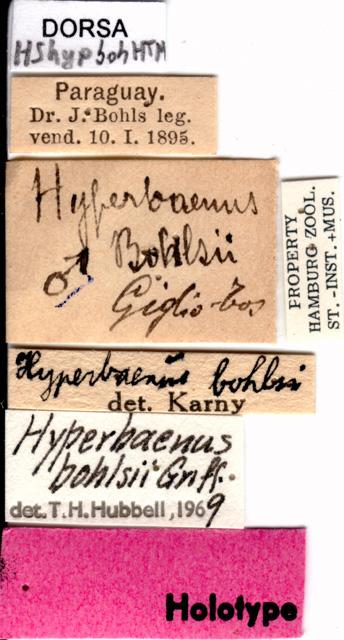 DORSA
HShypbohHTM
Paraguay.
Dr. J. Bohls leg.
vend. 10. I. 1895.
Hyperbaenus
♂ Bohlsii
Giglio-Tos
PROPERTY
HAMBURG ZOOL.
ST.-INST.+MUS.
Hyperbaenus bohlsii
det. Karny
Hyperbaenus
bohlsii Griff.
det. T. H. Hubbell, 1969
Holotype